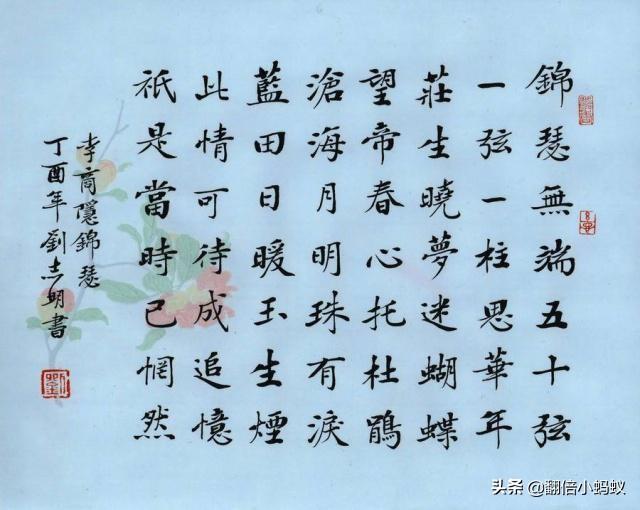 錦瑟無端五十弦
一弦一柱思華年
莊生曉夢迷蝴蝶
望帝春心托杜鵑
滄海月明珠有淚
藍田日暖玉生煙
此情可待成追憶
祇是當時已惘然
李商隱錦瑟
丁酉年劉志明書
劉
头条 @翻倍小蚂蚁